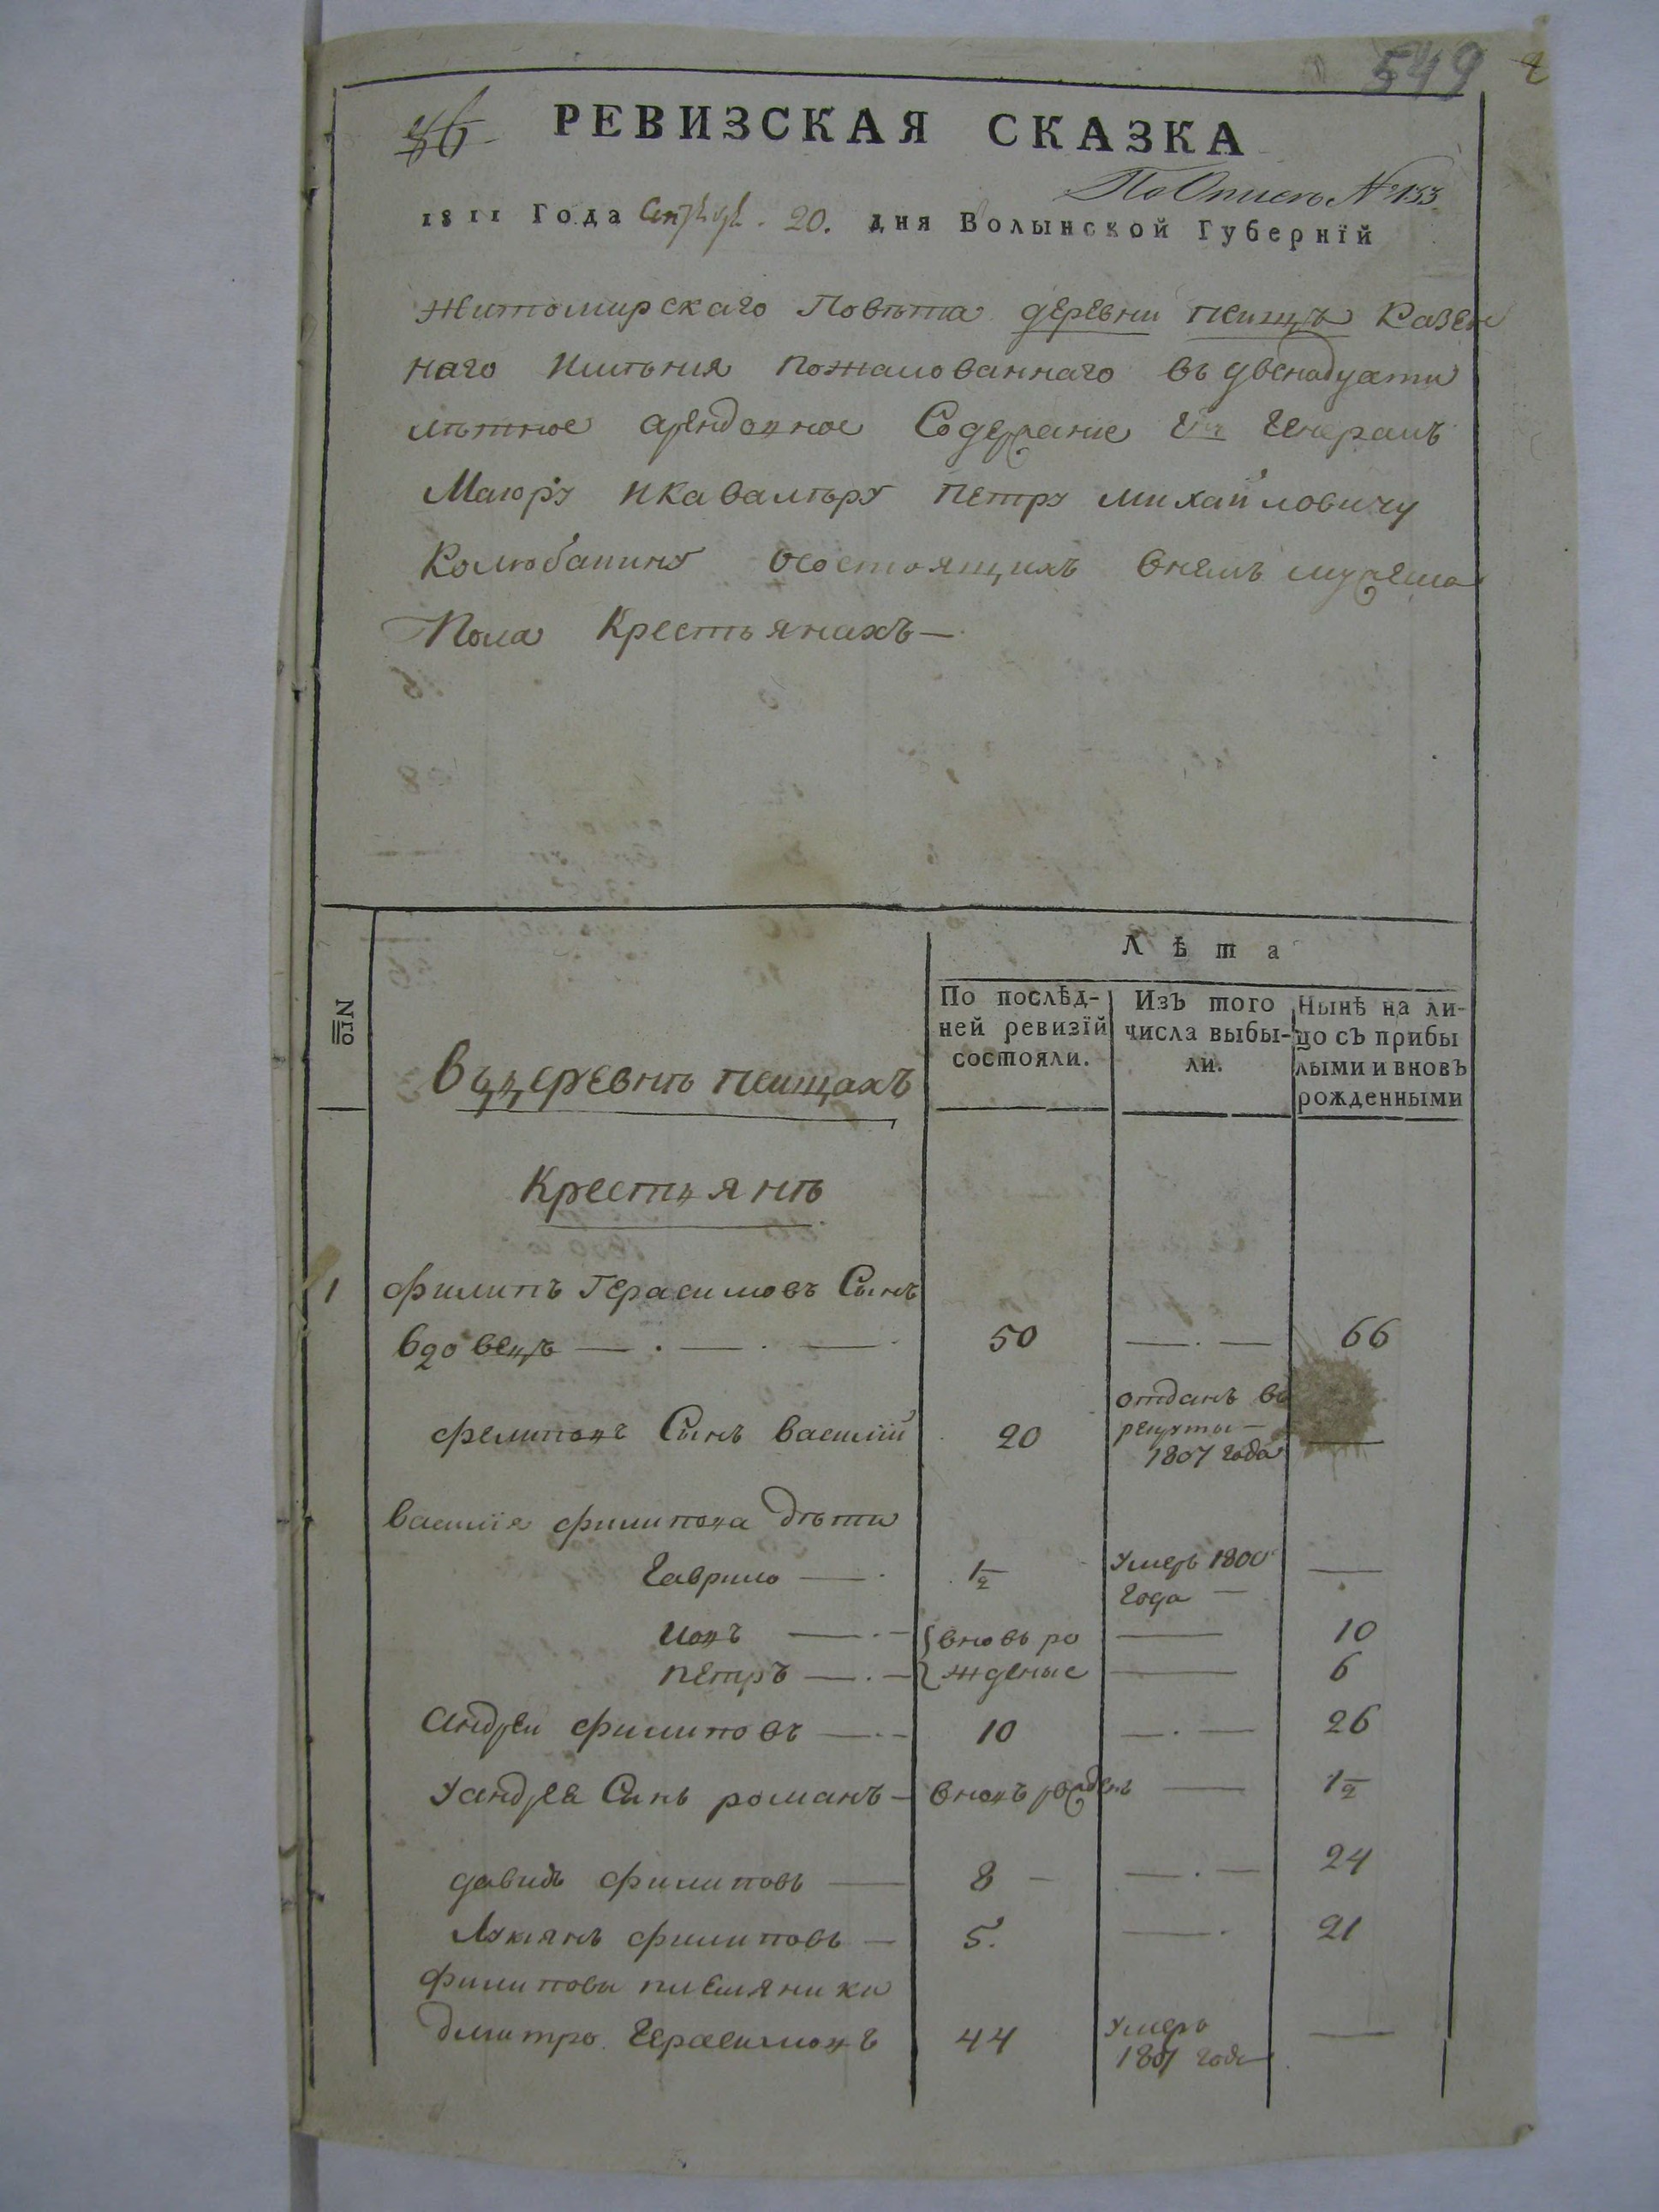 549
2
36
РЕВИЗСКАЯ СКАЗКА
По Описи №133
1811 Года Сентября 20. дня Волынской Губернїй
Житомирскаго Повѣта деревни Пеищъ Казен
наго Имѣния пожалованнаго въ двенадцати
лѣтное арендовное Содержание Генералъ
Маюру икавалѣру Петру Михайловичу
Колюбакину осостоящихъ внемъ мужеска
Пола Крестьянахъ—
№
Лѣта
По послѣд-
ней ревизїй
состояли.
Изъ того
числа выбы-
ли.
Нынѣ на ли-
цо съ прибы
лыми и вновь
рожденными
въдеревнѣ пеищахъ
Крестьянѣ
1 Филипъ Герасимовъ Сынъ
вдовецъ — . — . — 50 — . — 66
Филиповъ Сынъ Василїй 20 отданъ въ рекруты — 1807 года —
Василїя Филипова дѣти
Гаврило — . 1/2 Умеръ 1800 Года — —
Иовъ — . — вновь ро — 10
Петръ — . — жденые — 6
Андреи Филиповъ — . — 10 — . — 26
Уандрея Сынъ романъ — вновъ рожденъ — 1/2
давидъ Филиповъ — 8 — — . — 24
Лукиянъ Филиповъ — 5. — . 21
Филиповы племяники
Дмитро Герасимовъ 44 Умеръ 1807 года —